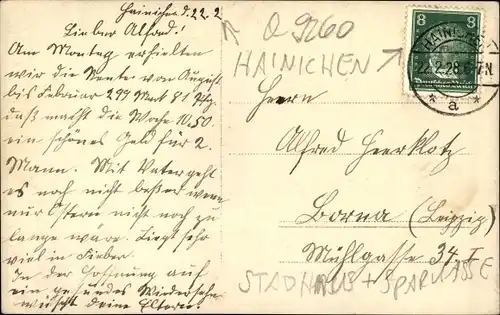 Hainichen d. 22. 2.
Lieber Alfred!
Am Montag erhielten
wir die Rente von August
bis Februar 299 Mark 81 Pfg.
daß macht die Woche 10,50
ein schönes Geld für 2.
Mann. Mit Vater geht
es noch nicht beßer wenn
nur Ostern nicht noch zu
lange wäre. Liegt sehr
viel in Fieber.
In der Hoffnung auf
ein gesundes Wiedersehn
wünscht deine Eltern.
Q 9260
HAINICHEN
8 8
HAINICHEN
2.28.6-7N
* a *
Deutsches Reich
Herrn
Alfred Heerklotz
Borna (Leipzig)
Mühlgasse 34, I
STADHAUS + SPARKASSE